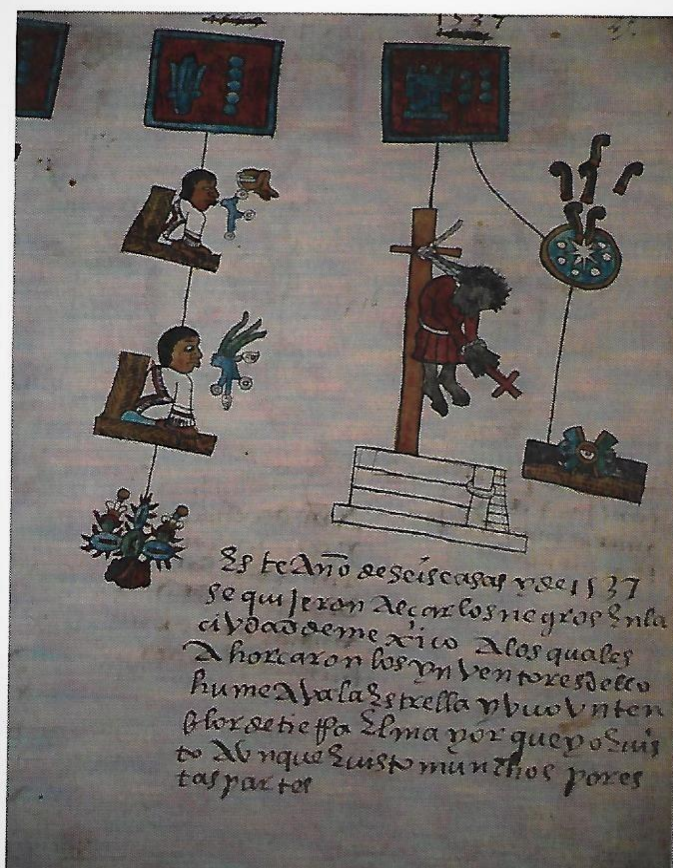 1537
Este Año de seis casas y de 1537
se quijeron Alçar los negros En la
ciVdad de mexico A los quales
Ahorcaron los ynVentores dello
humeAVa la Estrella y Vuo Vn ten
blor de tierra El mayor que yo E Vis
to AVnque E Visto munchos por es
tas partes